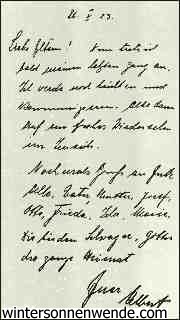 V 23.
Liebe Eltern! Nun trete ich
bald meinen letzten Gang an.
Ich werde noch beichten und
kommunizieren. Also dann
auf ein frohes Wiedersehen
im Jenseits.
Nochmals Gruß an Euch
alle, Vater, Mutter, Josef,
Otto, Frieda, Ida, Marie,
die beiden Schwager,
die ganze Heimat
Euer
Albert
wintersonnenwende.com